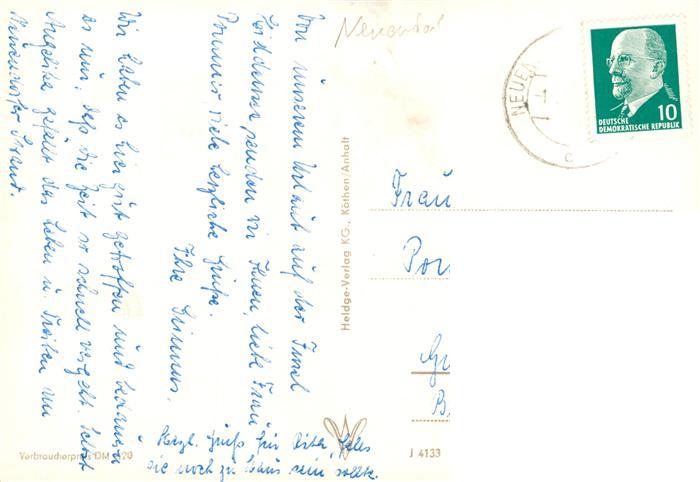 Von unserem Urlaub auf der Insel
Hiddensee senden wir Ihnen, liebe Frau
viele herzliche Grüße.
Ihre
Wir haben es hier gut getroffen und bedauern
es nur, daß die Zeit so schnell vergeht. Selbst
Angelika gefällt das Leben u. Treiben am
Neuendorfer Strand.
Herzl. Gruß für falls
sie noch zu Haus sein sollte.
Neuendorf
Heldge-Verlag KG., Köthen/Anhalt
Verbraucherpreis DM 0,20
J 4133
NEUEN
c
10
DEUTSCHE
DEMOKRATISCHE REPUBLIK
Frau